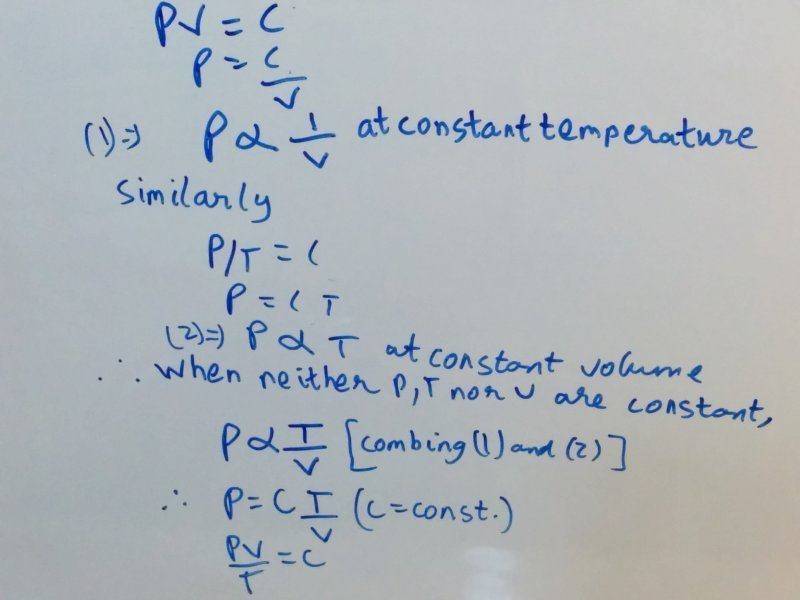 PV = C
P = C/V
(1)⇒ P ∝ 1/V at constant temperature
Similarly
P/T = C
P = C T
(2)⇒ P ∝ T at constant volume
∴ when neither P, T nor V are constant,
P ∝ T/V [combing (1) and (2)]
∴ P = C T/V (C = const.)
PV/T = C